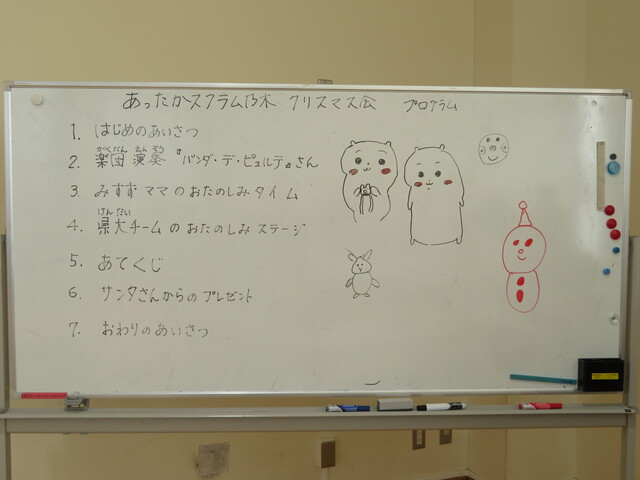 あったかスクラム乃木 クリスマス会 プログラム
1. はじめのあいさつ
がくだん えんそう
2. 楽団 演奏 『バンダ・デ・ピュルテ』さん
3. みすずママのおたのしみタイム
けんだい
4. 県大チームのおたのしみステージ
5. あてくじ
6. サンタさんからのプレゼント
7. おわりのあいさつ